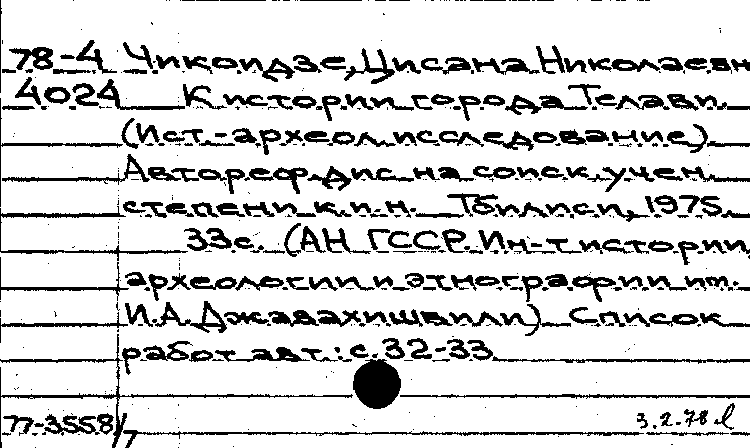 78-4 Чикоидзе, Цисана Николаевн
4024 К истории города Телави.
(Ист.-археол. исследование)
Автореф. дис. на соиск. учен.
степени к.и.н. Тбилиси, 1975.
33с. (АН ГССР. Ин-т истории,
археологии и этнографии им.
И.А. Джавахишвили) Список
работ авт.: с. 32-33.
77-3558/7 3.2.78